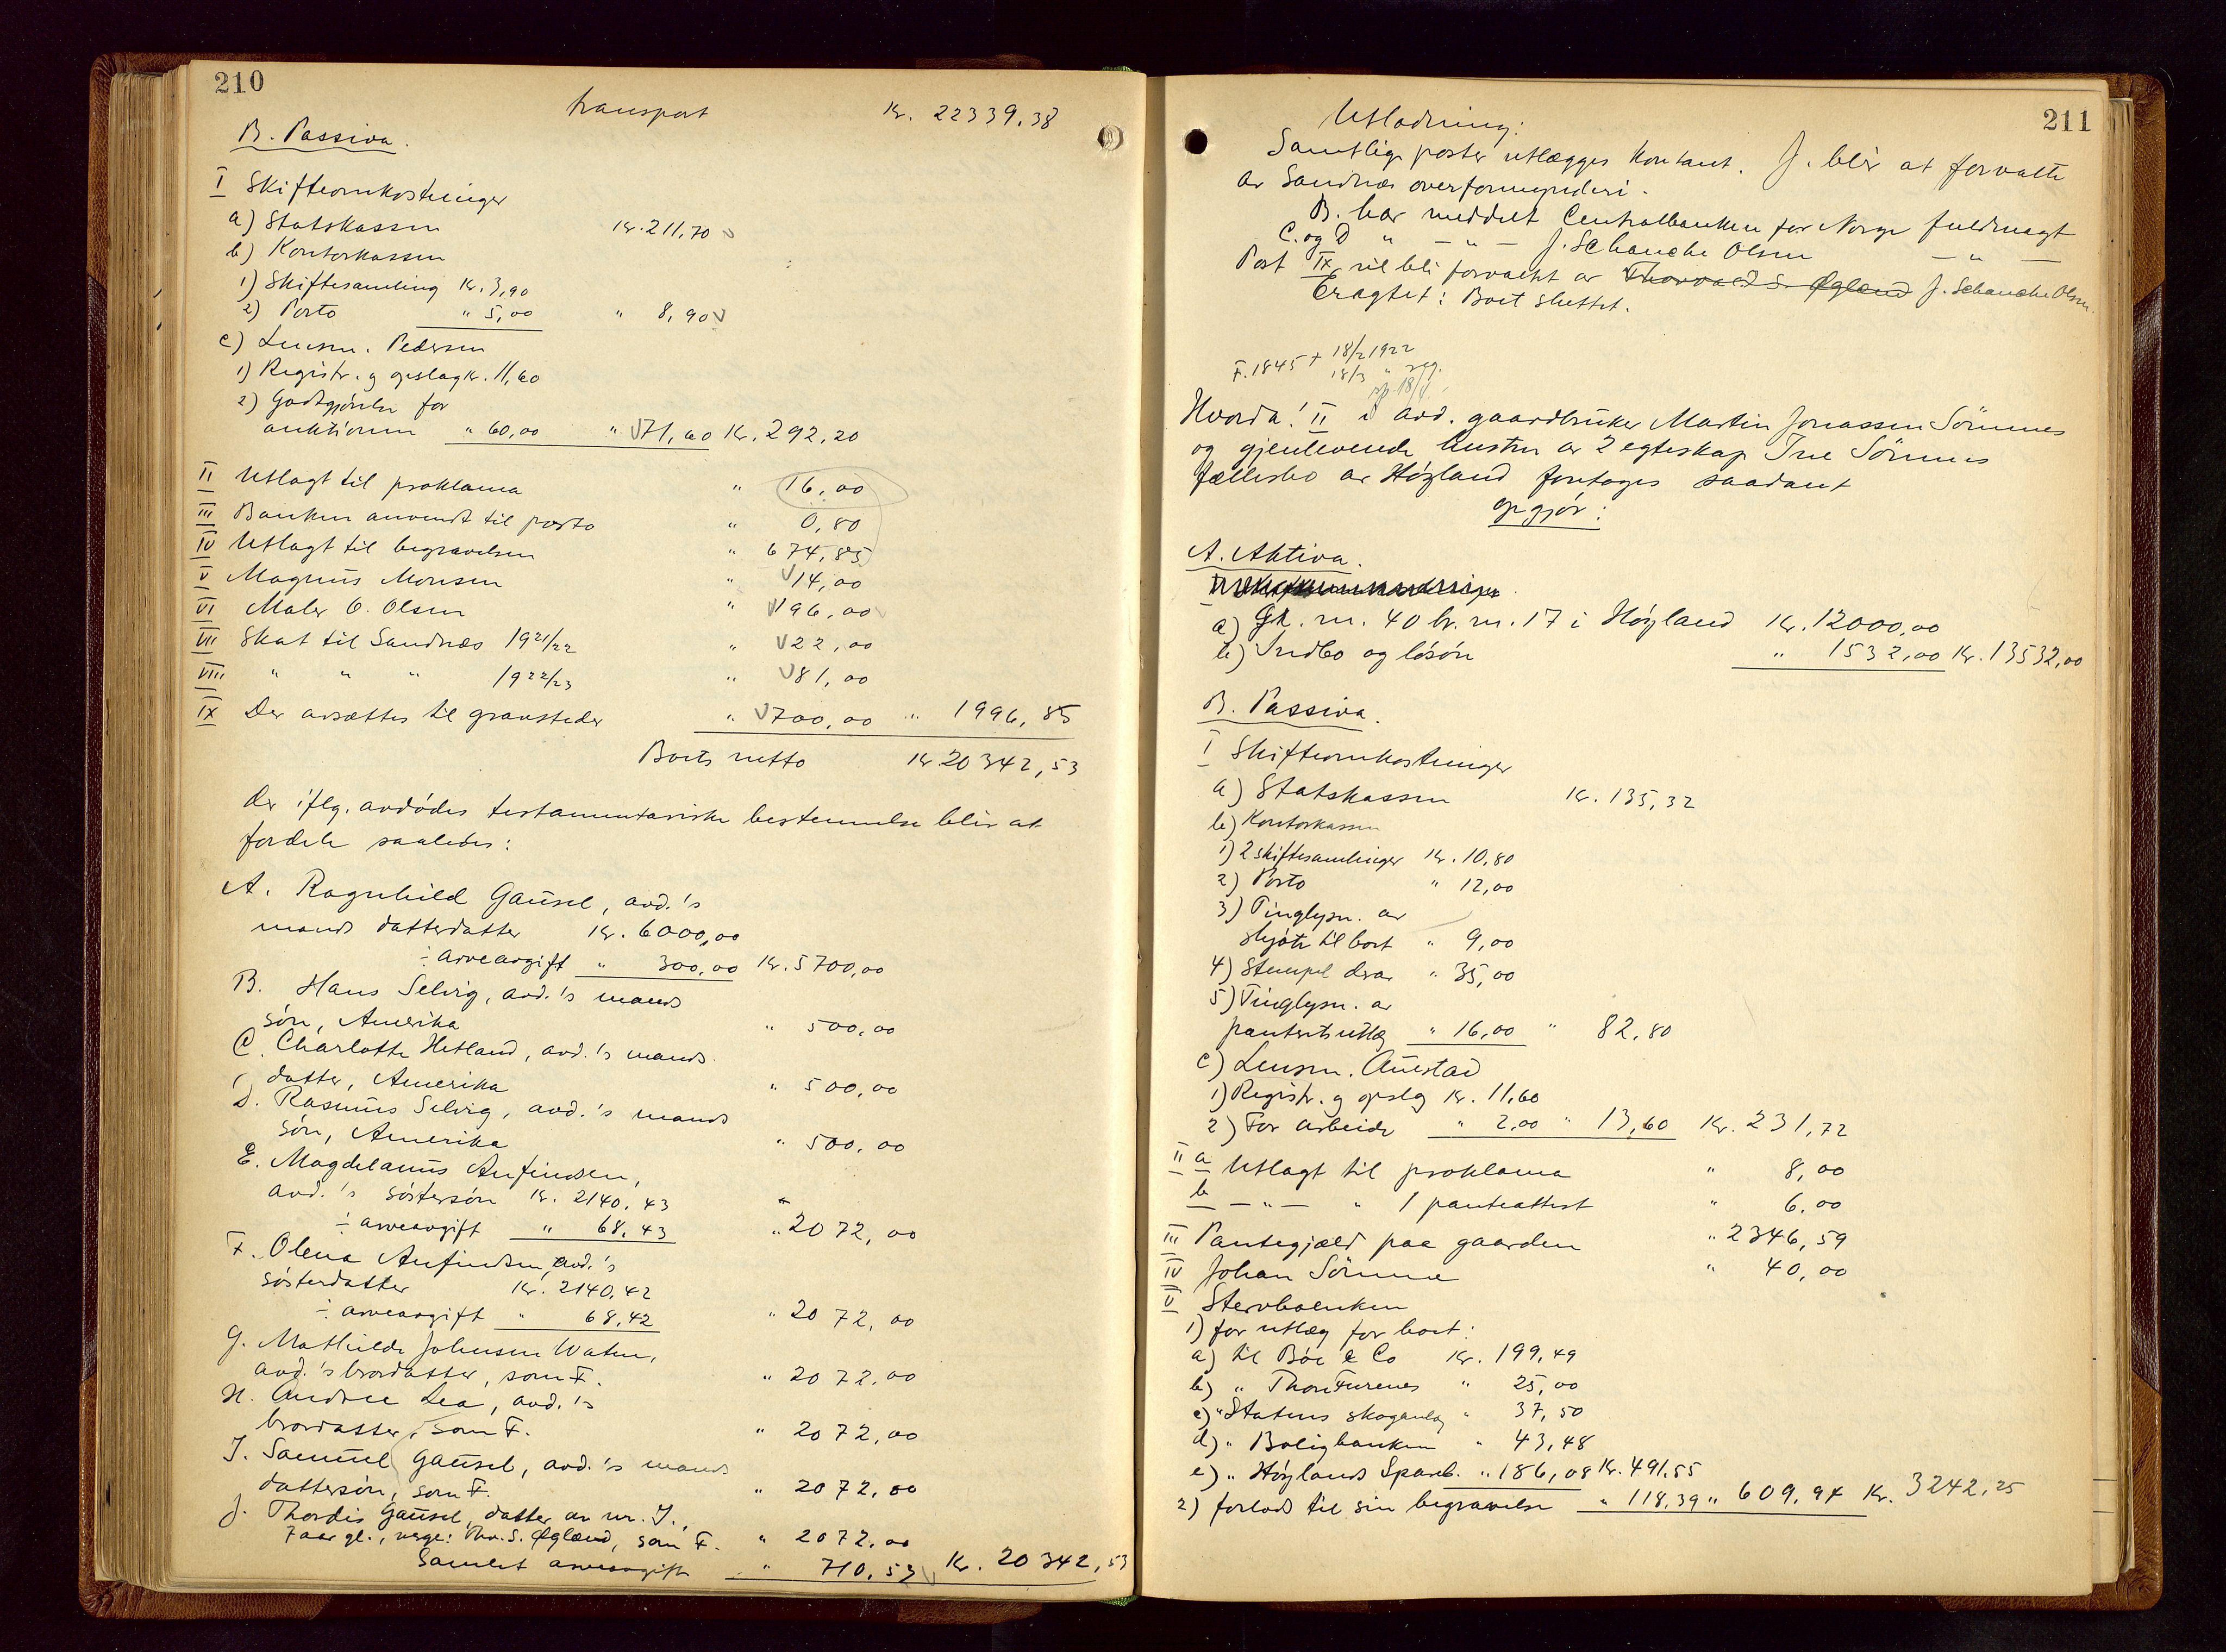 210
transport Kr. 22339.38
B. Passiva.
I Skifteomkostninger
a) Statskassen Kr. 211,70
b) Kontorkassen
1) Skiftesamling Kr. 3,90
2) Porto " 5,00 " 8,90
c) Lensm. Pedersen
1) Registr. og opslag Kr. 11,60
2) Godtgjørelse for
auktionen " 60,00 " 71,60 Kr. 292,20
II Utlagt til proklama " 16,00
III Banken anvendt til porto " 0,80
IV Utlagt til begravelsen " 674,85
V Magnus Monsen " 14,00
VI Maler O. Olsen " 196,00
VII Skat til Sandnæs 1921/22 " 22,00
VIII " " " 1922/23 " 81,00
IX Der avsættes til gravsteder " 700,00 " 1996,85
Boets netto Kr. 20342,53
der iflg. avdødes testamentariske bestemmelse blir at
fordele saaledes:
A. Ragnhild Gausel, avd.'s
mands datterdatter Kr. 6000,00
÷ arveavgift " 300,00 Kr. 5700,00
B. Hans Selvig, avd.'s mands
søn, Amerika " 500,00
C. Charlotte Hetland, avd.'s mands
datter, Amerika " 500,00
D. Rasmus Selvig, avd.'s mands
søn, Amerika " 500,00
E. Magdelanus Anfindsen,
avd.'s søstersøn Kr. 2140,43
÷ arveavgift " 68,43 " 2072,00
F. Olena Anfindsen, avd.'s
søsterdatter Kr. 2140,42
÷ arveavgift " 68,42 " 2072,00
G. Mathilde Johnsen Waten,
avd.'s brordatter, som F. " 2072,00
H. Andree Lea, avd.'s
brordatter, som F. " 2072,00
I. Samuel Gausel, avd.'s mands
dattersøn, som F. " 2072,00
J. Thordis Gausel, datter av nr. I.,
7 aar gl., verge: Thv. S. Øglænd, som F. " 2072,00
Samlet arveavgift " 710,53 Kr. 20342,53
211
Utlodning:
Samtlige poster utlægges kontant. J. blir at forvalte
av Sandnæs overformynderi.
B. har meddelt Centralbanken for Norge fuldmagt
C. og D " — " — J. Schanche Olsen — " —
Post IX vil bli forvaltet av Thorvald S. Øglænd J. Schanche Olsen.
Eragtet: Boet sluttet.
F. 1845 + 18/2 1922
18/3 " reg.
Hvorda! II i avd. gaardbruker Martin Jonassen Sømmes
og gjenlevende hustru av 2 egteskap Ine Sømmes
fællesbo av Høiland foretoges saadant
opgjør:
A. Aktiva.
a) Gr. nr. 40 br. nr. 17 i Høyland Kr. 12000,00
b) Indbo og løsøre " 1532,00 Kr. 13532,00
B. Passiva.
I Skifteomkostninger
a) Statskassen Kr. 135,32
b) Kontorkassen
1) 2 skiftesamlinger Kr. 10,80
2) Porto " 12,00
3) Tinglysn. av
skjøte til boet " 9,00
4) Stempel derav " 35,00
5) Tinglysn. av
panteretsutlæg " 16,00 " 82,80
c) Lensm. Auestad
1) Registr. og opslag Kr. 11,60
2) For arbeide " 2,00 " 13,60 Kr. 231,72
II a Utlagt til proklama " 8,00
b — " — " 1 panteattest " 6,00
III Pantegjæld paa gaarden " 2346,59
IV Johan Sømme " 40,00
V Stervboenken
1) for utlæg for boet:
a) til Bøe & Co Kr. 199,49
b) " Thon Furenes " 25,00
c) " Statens skoganlæg " 37,50
d) " Boligbanken " 43,48
e) " Høylands Spareb. " 186,08 Kr. 491,55
2) forlods til sin begravelse " 118,39 " 609,94 Kr. 3242,25